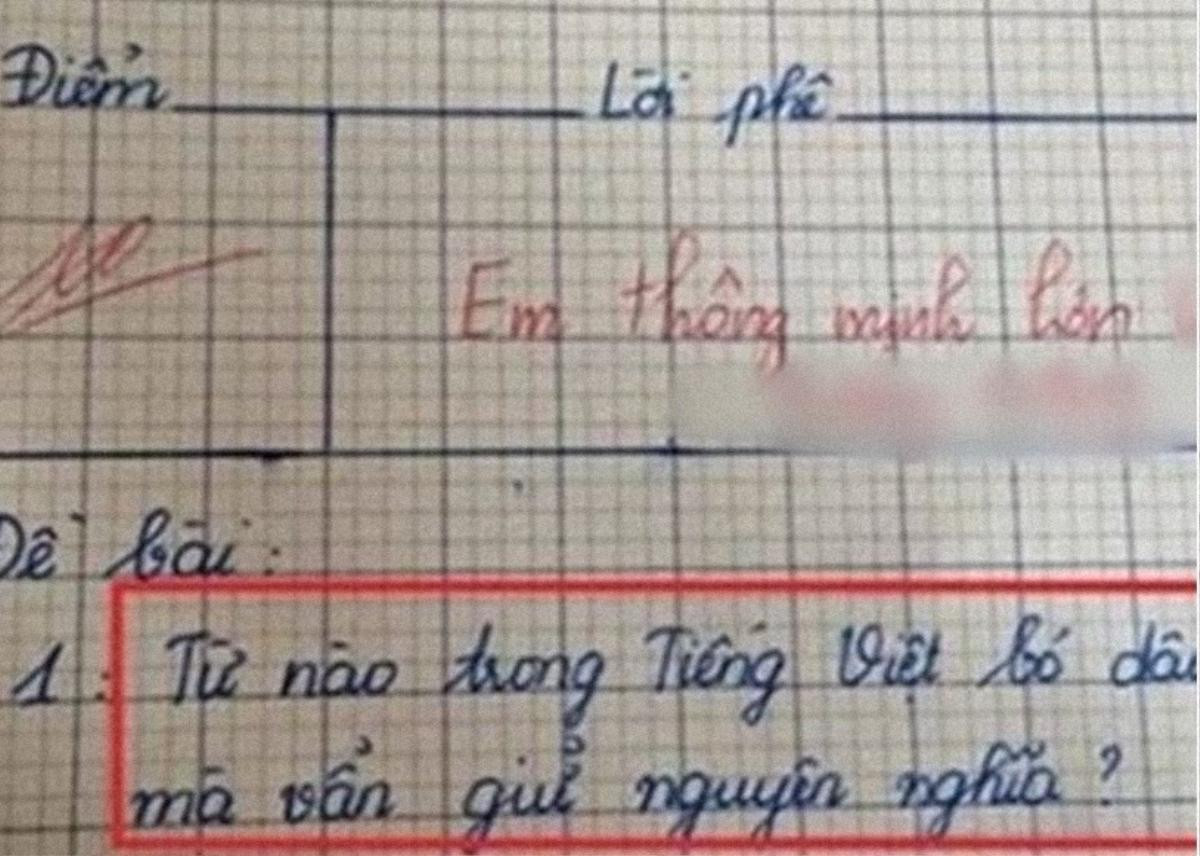 Điểm Lời phê
Em thông minh hơn
Đề bài:
1: Từ nào trong Tiếng Việt bỏ
mà vẩn giử nguyên nghĩa ?